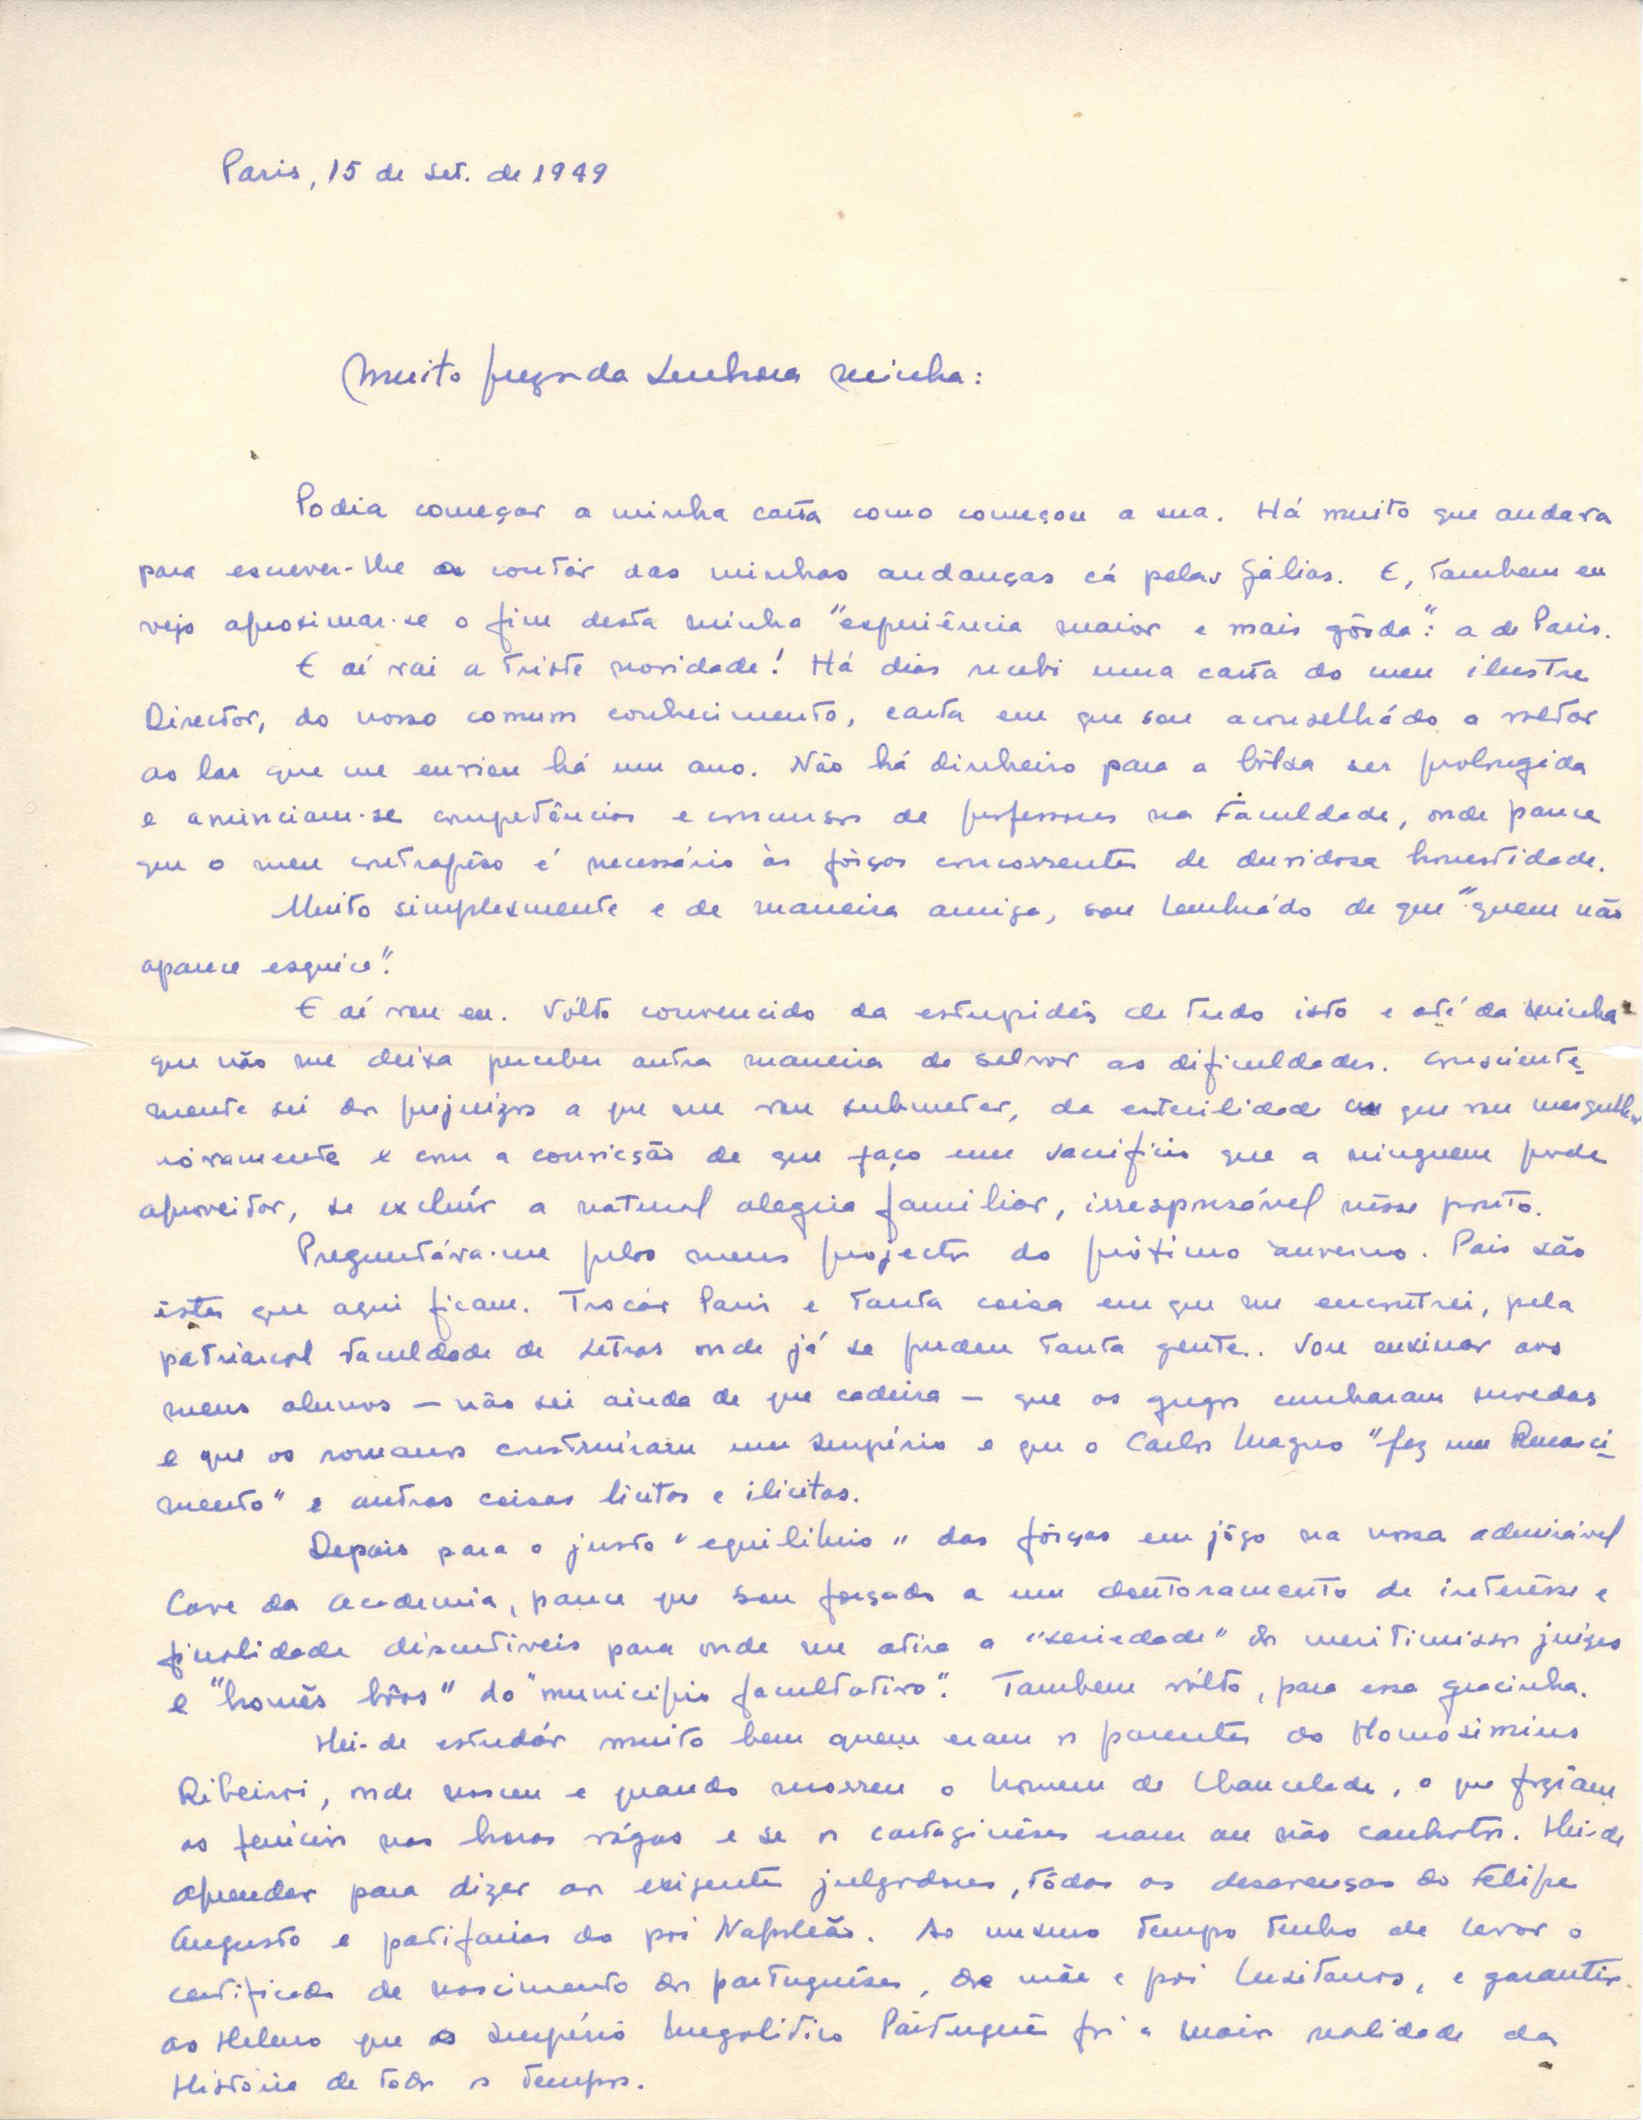 Paris, 15 de set. de 1949
Muito prezada Senhora minha:
Podia começar a minha carta como começou a sua. Há muito que andava
para escrever-lhe a contár das minhas andanças cá pelas Gálias. E, tambem eu
vejo aproximar-se o fim desta minha "experiência maior e mais górda": a de Paris.
E aí vai a triste novidade! Há dias recebi uma carta do meu ilustre
Director, do nosso comum conhecimento, carta em que sou aconselhádo a voltar
ao lar que me enviou há um ano. Não há dinheiro para a bôlsa ser prolongida
e anunciam-se competências e concursos de professores na Faculdade, onde parece
que o meu contrapêso é necessário às fôrças concorrentes de duvidosa honestidade.
Muito simplesmente e de maneira amiga, sou lembrádo de que "quem não
aparece esquece".
E aí vou eu. Vólto convencido da estupidês de tudo isto e até da minha
que não me deixa perceber outra maneira de salvar as dificuldades. Consciente-
mente sei dos prejuizos a que me vou submeter, da esterilidade em que vou mergulhar
nóvamente e com a convicsão de que faço um sacrificio que a ninguem pode
aproveitar, se excluír a natural alegria familiar, irresponsável nêsse ponto.
Preguntáva-me pelos meus projectos do próximo inverno. Pois são
êstes que aqui ficam. Trocár Paris e tanta coisa em que me encontrei, pela
patriarcal Faculdade de Letras onde já se perdeu tanta gente. Vou ensinar aos
meus alunos — não sei ainda de que cadeira — que os gregos cunharam moedas
e que os romanos construíram um Império e que o Carlos Magno "fez um Renasci-
mento" e outras coisas licitas e ilicitas.
Depois para o justo "equilibrio" das fôrças em jôgo na nossa admirável
Cave da Academia, parece que sou forçado a um doutoramento de interêsse e
finalidade discutiveis para onde me atira a "seriedade" dos meritimissos juizes
e "homês bôos" do "municipio facultativo". Tambem vólto, para essa gracinha.
Hei-de estudár muito bem quem eram os parentes do Homosimius
Ribeiroi, onde nasceu e quando morreu o homem de Chancelade, o que faziam
os fenicios nas horas vágas e se os cartaginêses eram ou não canhotos. Hei-de
aprender para dizer aos exigentes julgadores, tôdas as desavenças do Felipe
Augusto e patifarias do pai Napoleão. Ao mesmo tempo tenho de levar o
certificado de nascimento dos portuguêses, de mãe e pai Lusitanos, e garantir
ao Heleno que o Império Megalitico Portuguê foi a maior realidade da
História de todos os tempos.